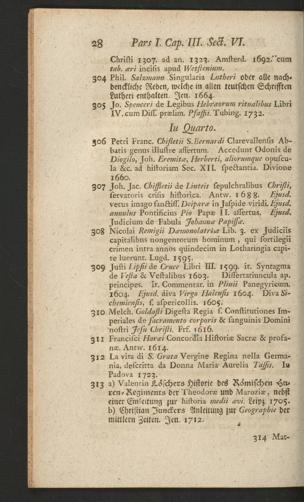 28 Pars I. Cap. III. Sect. VI.
Christi 1307. ad an. 1323. Amsterd. 1692. cum
tab. æri incisis apud Wetstenium.
304 Phil. Salzmann Singularia Lutheri oder alle nach-
denckliche Reden, welche in allen teutschen Schrifften
Lutheri enthalten. Jen. 1664.
305 Jo. Spenceri de Legibus Hebræorum ritualibus Libri
IV. cum Diss. prælim. Pfaffii. Tubing. 1732.
In Quarto.
306 Petri Franc. Chifletii S. Bernardi Clarevallensis Ab-
batis genus illustre assertum. Accedunt Odonis de
Diogilo, Joh. Eremitæ, Herberti, aliorumque opuscu-
la &c. ad historiam Sec. XII. spectantia. Divione
1660.
307 Joh. Jac. Chiffletii de Linteis sepulchralibus Christi,
servatoris crisis historica. Antw. 1688. Ejusd.
vetus imago sanctiss. Deiparæ in Jaspide viridi. Ejusd.
annulus Pontificius Pio Papæ II. assertus. Ejusd.
Judicium de Fabula Johannæ Papissæ.
308 Nicolai Remigii Dæmonolatriæ Lib. 3. ex Judiciis
capitalibus nongentorum hominum, qui sortilegii
crimen intra annos quindecim in Lotharingia capi-
te luerunt. Lugd. 1595.
309 Justi Lipsii de Cruce Libri III. 1593. it. Syntagma
de Vesta & Vestalibus 1603. Dissertiuncula ap.
principes. It. Commentar. in Plinii Panegyricum.
1604. Ejusd. diva Virgo Halensis 1604. Diva Si-
chemiensis, s. aspericollis. 1605.
310 Melch. Goldasti Digesta Regia s. Constitutiones Im-
periales de sacramento corporis & sanguinis Domini
nostri Jesu Christi. Frf. 1616.
311 Francisci Haræi Concordia Historiæ Sacræ & profa-
næ. Antw. 1614.
312 La vita di S. Grata Vergine Regina nella Germa-
nia, descritta da Donna Maria Aurelia Tassis. In
Padova 1723.
313 a) Valentin Löschers Historie des Römischen Hu-
ren-Regiments der Theodoræ und Maroziæ, nebst
einer Einleitung zur historia medii ævi. Leipz. 1705.
b) Christian Junckers Anleitung zur Geographie der
mittlern Zeiten. Jen. 1712.
314 Mat-